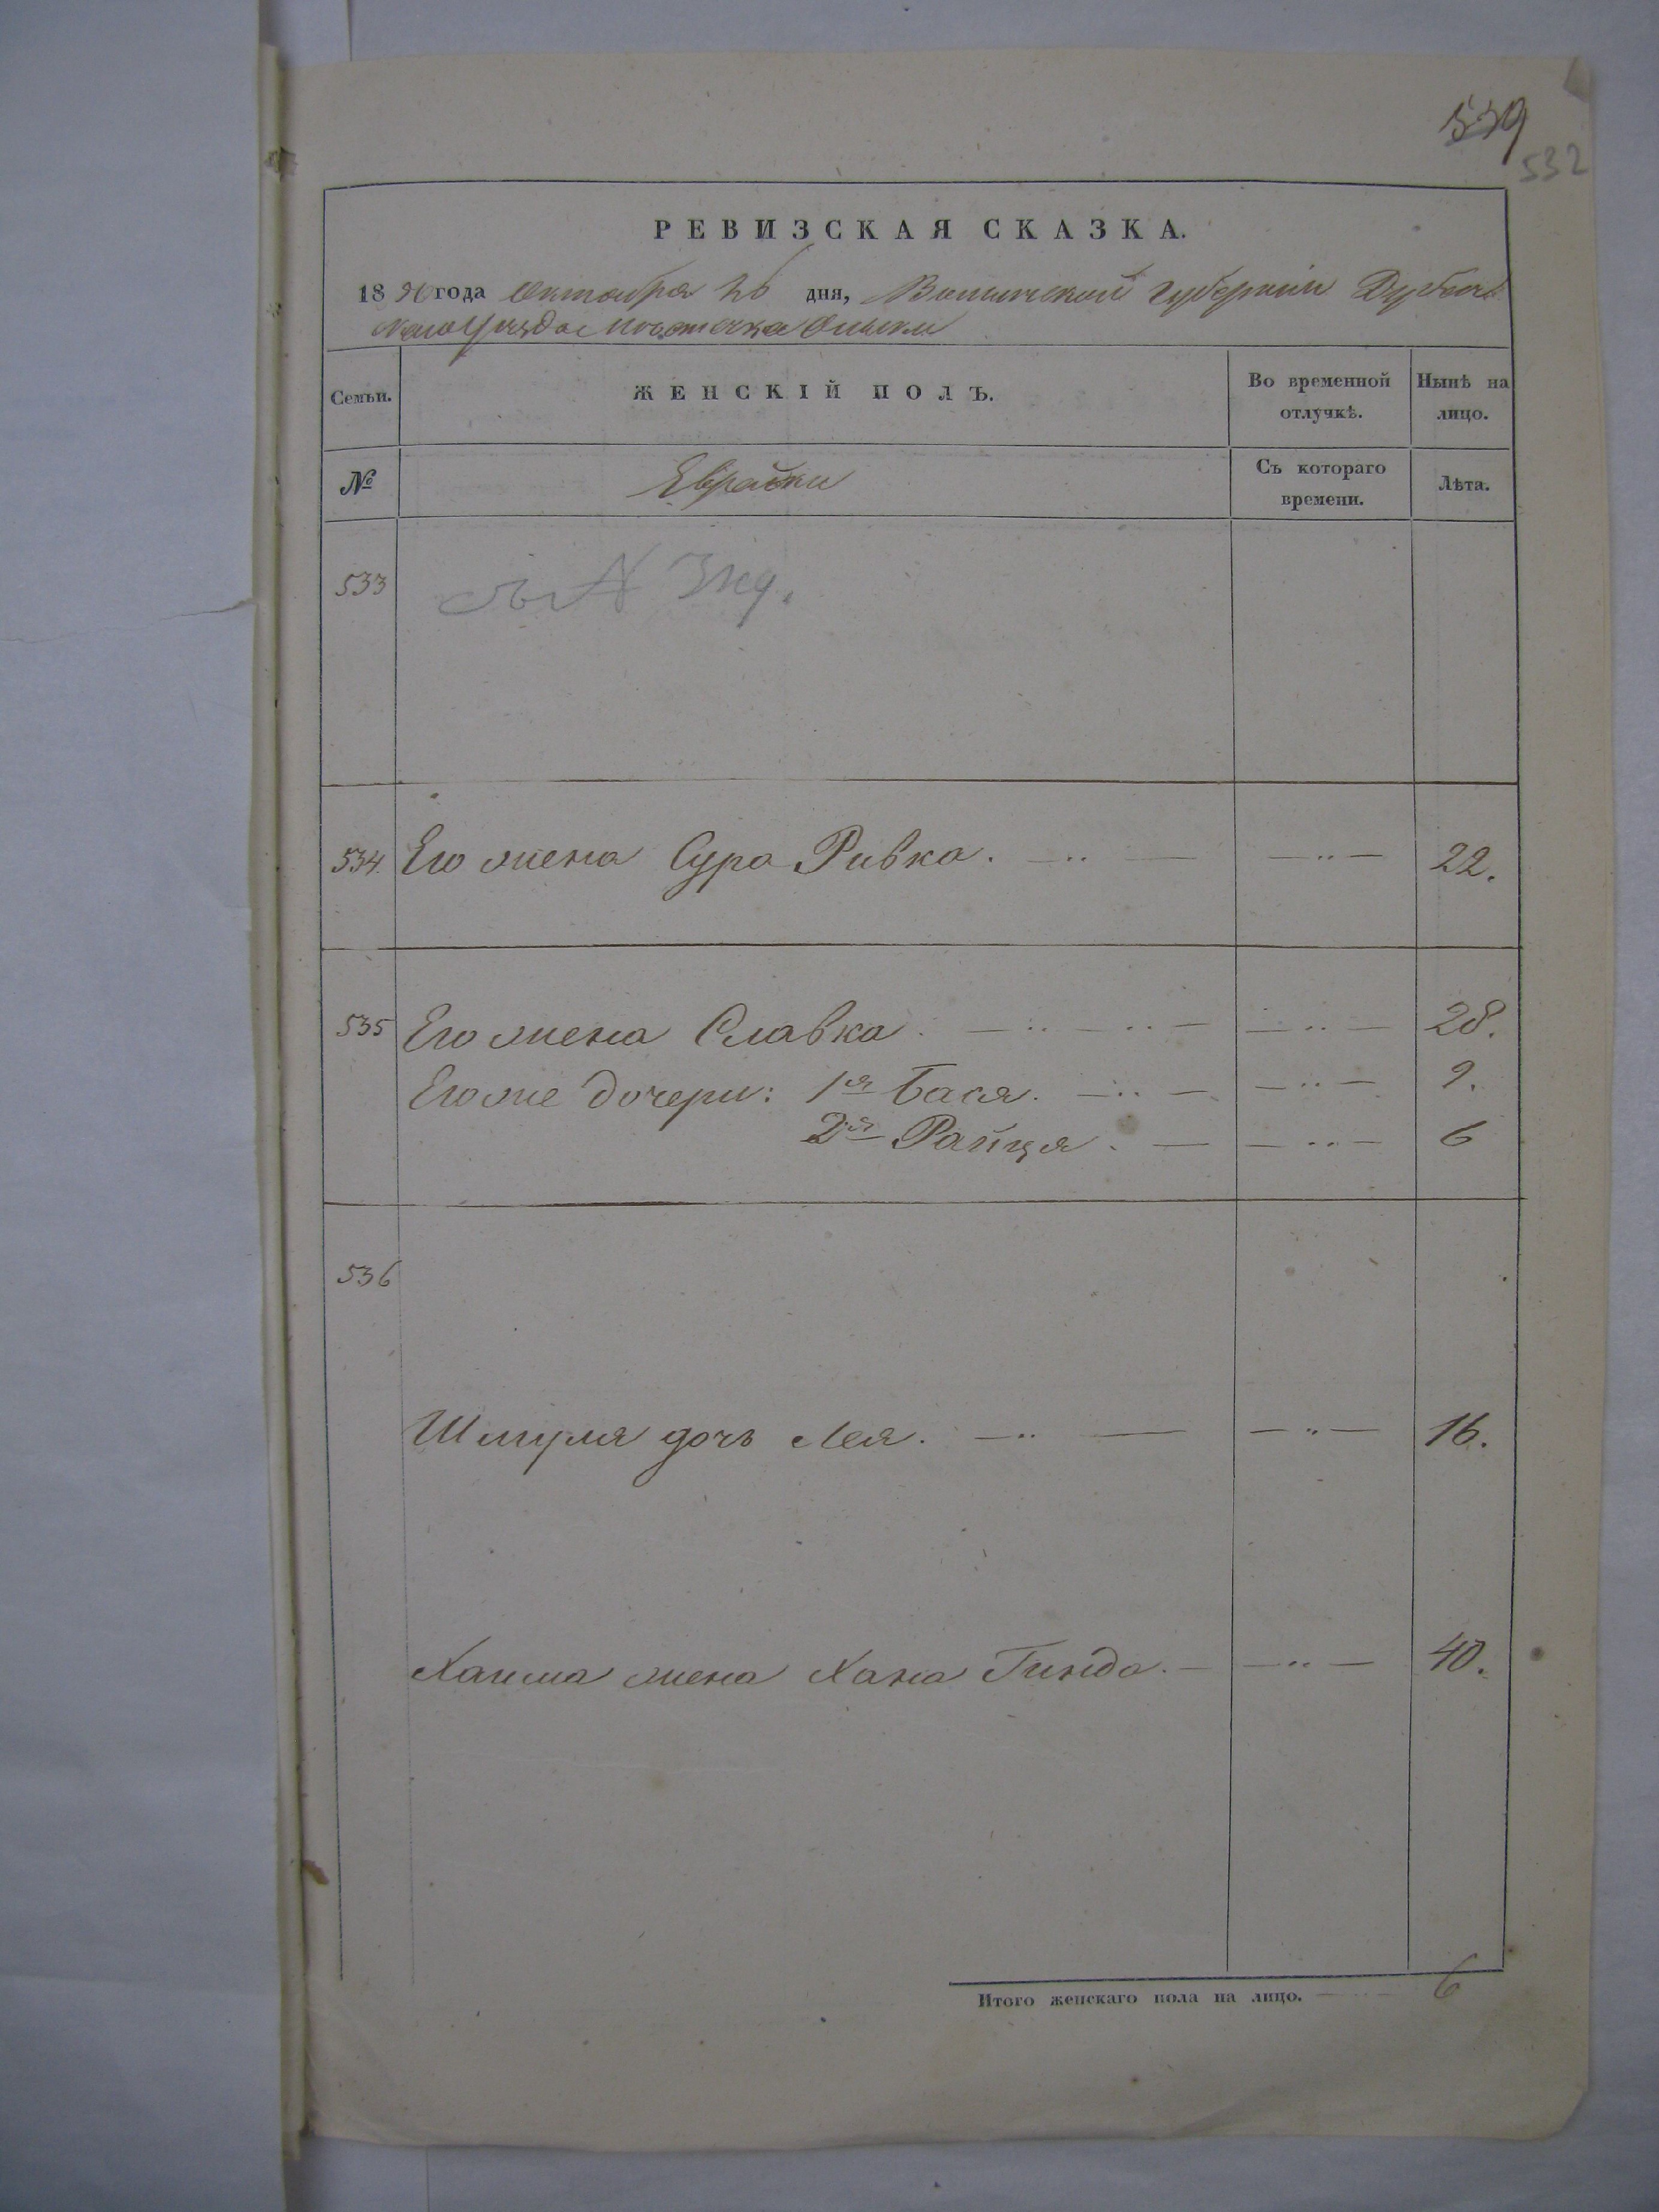 539
532
РЕВИЗСКАЯ СКАЗКА.
1850 года Октября 26 дня, Волынской Губернии Дубенс
каго Уезда местечка Олыки
Семьи. ЖЕНСКІЙ ПОЛЪ. Во временной отлучкѣ. Нынѣ на лицо.
№ Еврейки Съ котораго времени. Лѣта.
533
534. Его жена Сура Ривка. 22.
535 Его жена Славка. 28.
Его же дочери: 1я Бася. 9.
2я Райця. 6
536
Шмуля дочь Лея. 16.
Хаима жена Хана Гинда. 40.
Итого женскаго пола на лицо. 6